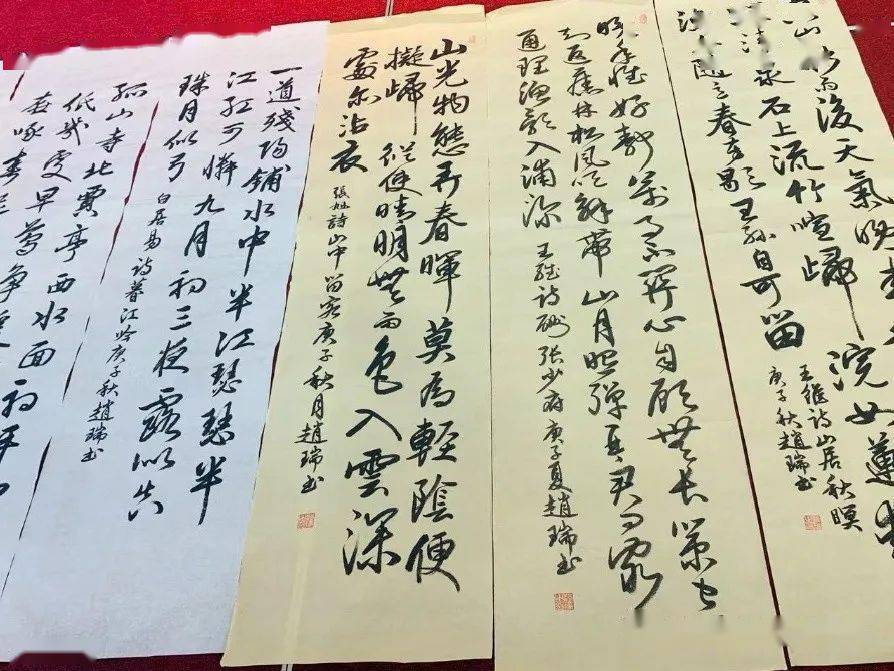 山雨後天氣晚
清泉石上流竹喧歸浣女蓮
隨意春芳歇王孫自可留
王維詩山居秋暝
庚子秋趙瑞书
晚年惟好静萬事不關心自顧無長策空
知返舊林松風吹解帶山月照彈琴君問窮
通理漁歌入浦深
王維詩酬張少府庚子夏趙瑞书
山光物態弄春暉莫為輕陰便
擬歸縱使晴明無雨色入雲深
處亦沾衣
張旭詩山中留客庚子秋月趙瑞书
一道殘陽鋪水中半江瑟瑟半
江紅可憐九月初三夜露似真
珠月似弓
白居易诗暮江吟庚子秋趙瑞书
孤山寺北賈亭西水面初平
低幾處早鶯争
燕啄春泥